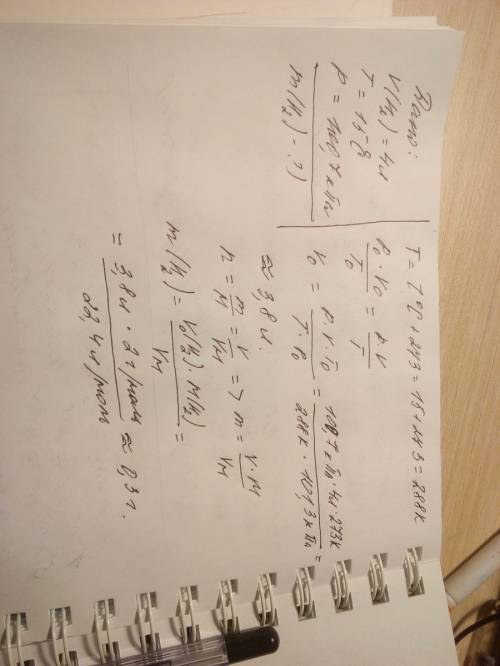 Дано:
V(H₂) = 4л
T = 15°C
P = 100,7 кПа
m(H₂) - ?
T = T°C + 273 = 15 + 273 = 288K
P₀ · V₀ / T₀ = P · V / T
V₀ = P · V · T₀ / T · P₀ = 100,7 кПа · 4л · 273K / 288K · 101,3 кПа =
≈ 3,8 л.
n = m / M = V / Vм => m = V · M / Vм
m(H₂) = V₀(H₂) · M(H₂) / Vм =
= 3,8л · 2г/моль / 22,4л/моль ≈ 0,3 г.